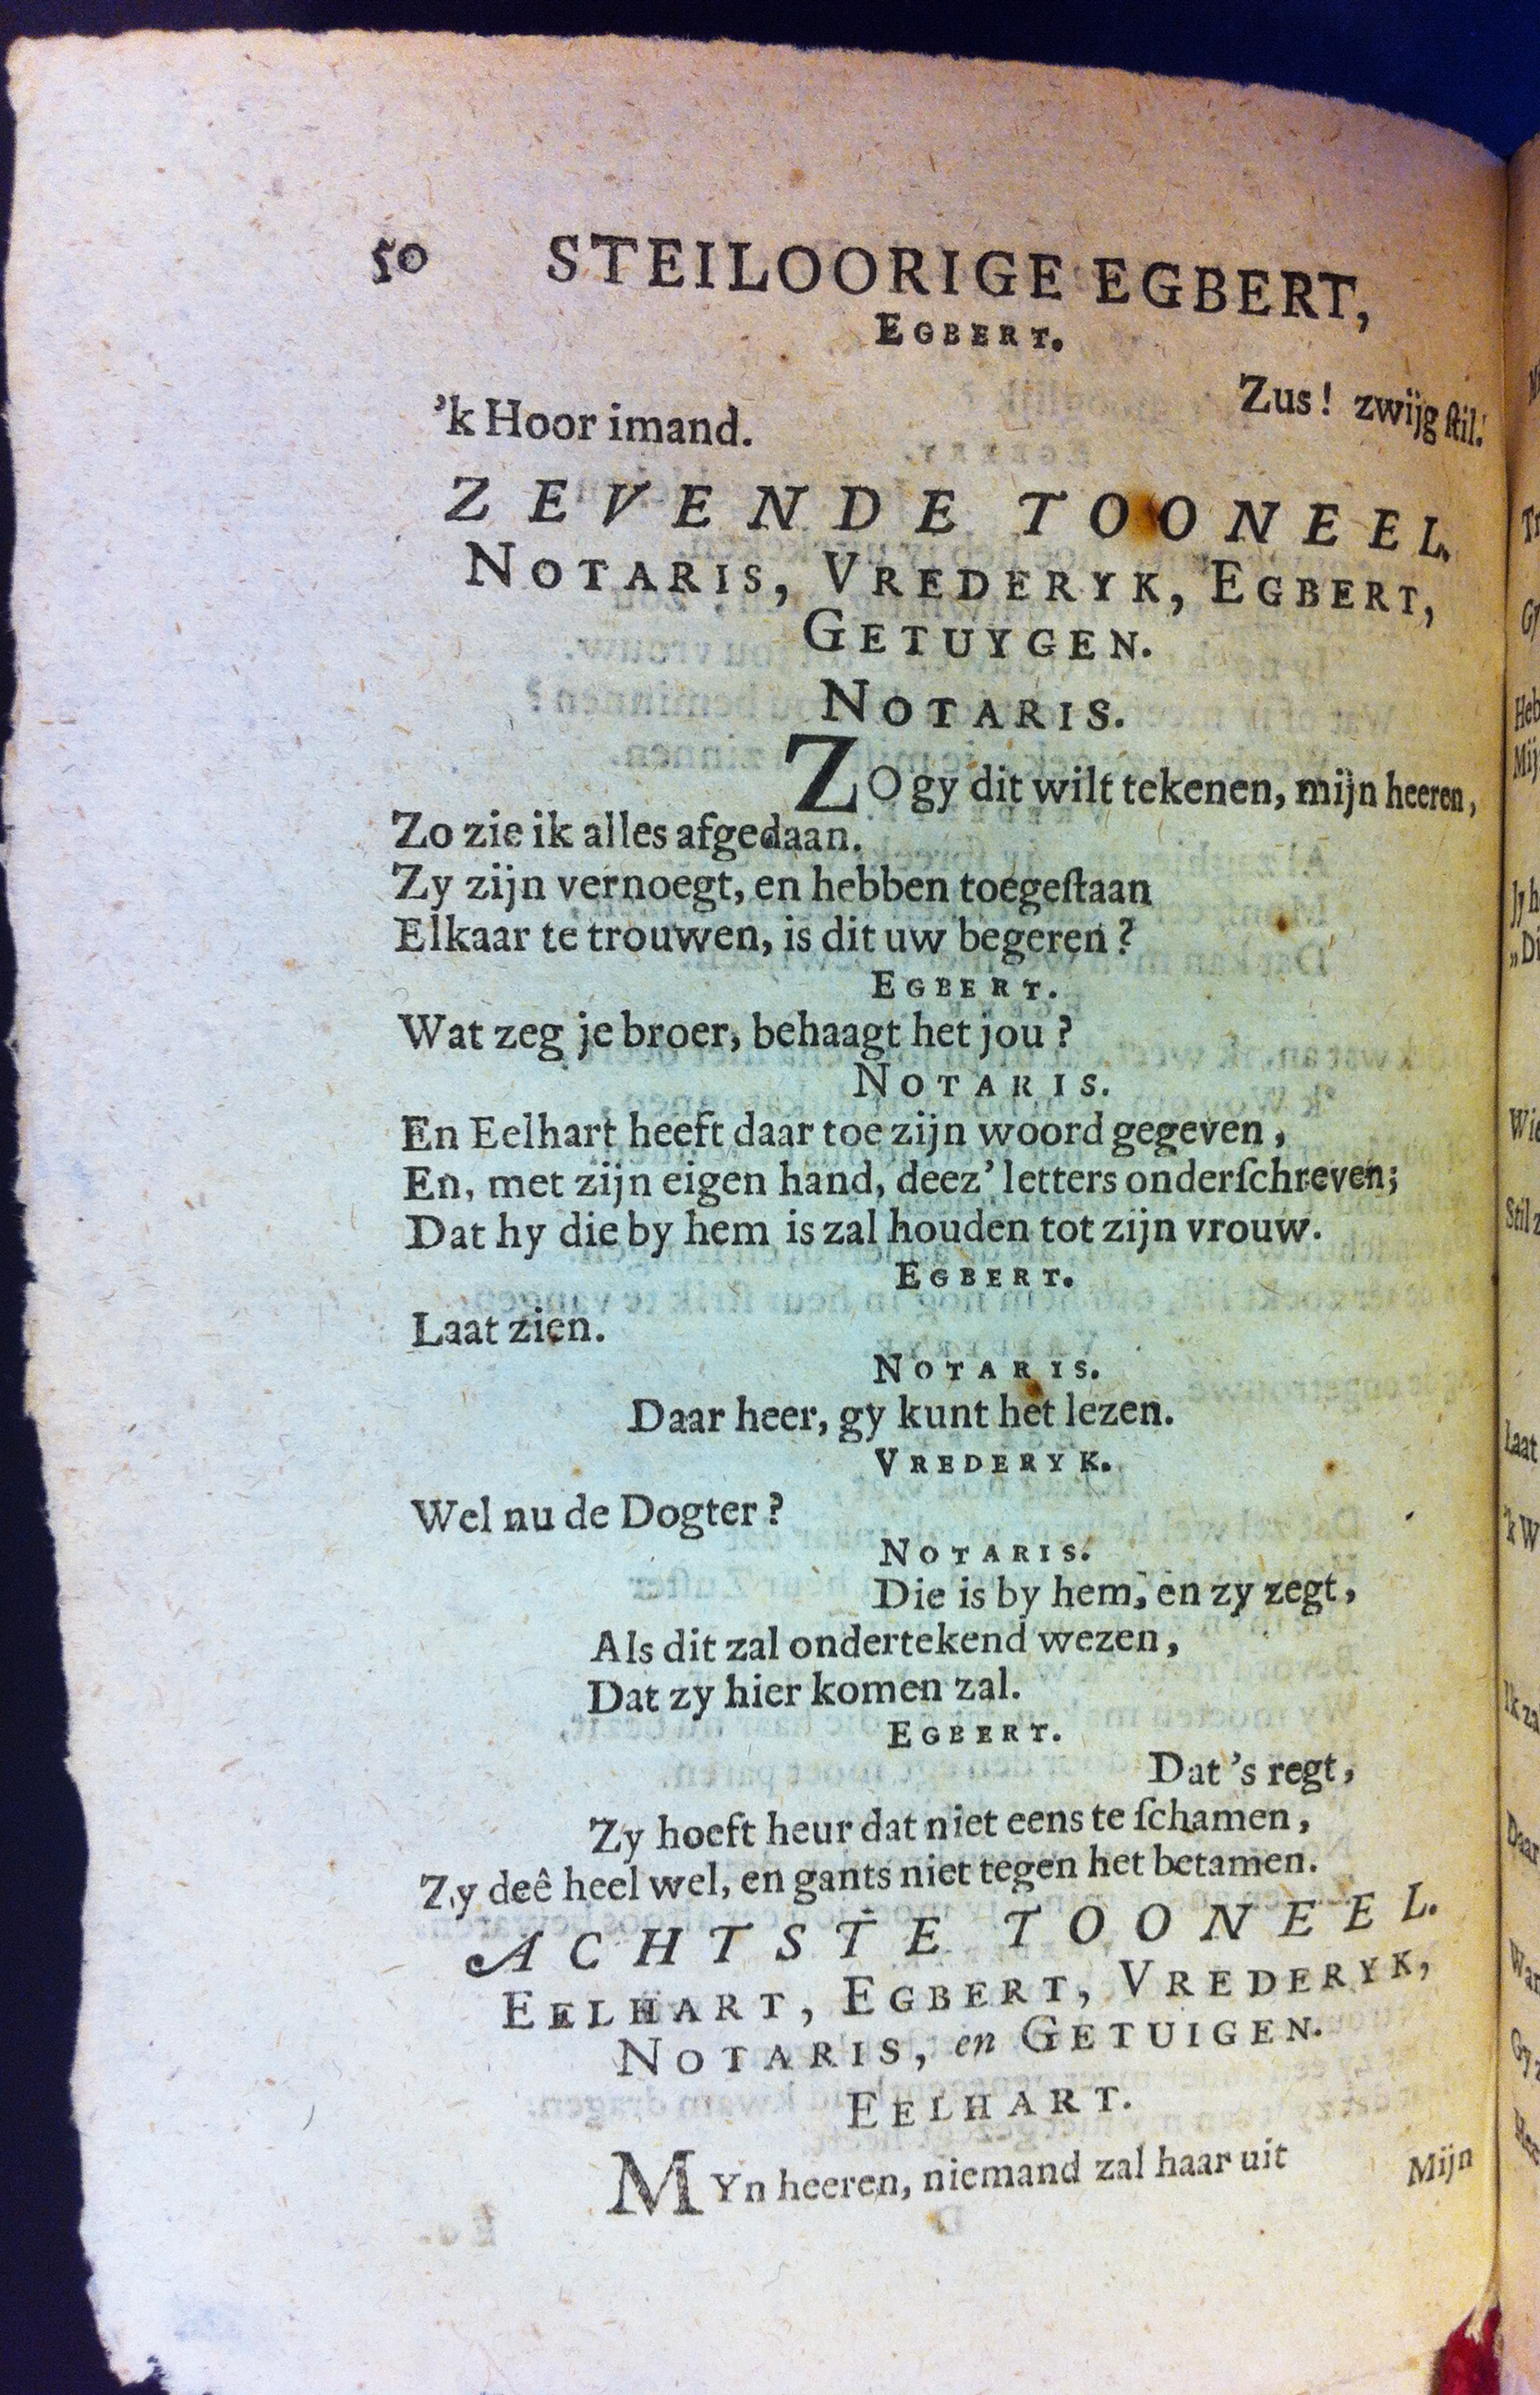 50 STEILOORIGE EGBERT,
EGBERT.
Zus! zwijg ſtil!
'k Hoor imand.
ZEVENDE TOONEEL.
NOTARIS, VREDERYK, EGBERT,
GETUYGEN.
NOTARIS.
ZO gy dit wilt tekenen, mijn heeren,
Zo zie ik alles afgedaan.
Zy zijn vernoegt, en hebben toegeſtaan
Elkaar te trouwen, is dit uw begeren?
EGBERT.
Wat zeg je broer, behaagt het jou?
NOTARIS.
En Eelhart heeft daar toe zijn woord gegeven,
En, met zijn eigen hand, deez' letters onderſchreven;
Dat hy die by hem is zal houden tot zijn vrouw.
EGBERT.
Laat zien.
NOTARIS.
Daar heer, gy kunt het lezen.
VREDERYK.
Wel nu de Dogter?
NOTARIS.
Die is by hem, en zy zegt,
Als dit zal ondertekend wezen,
Dat zy hier komen zal.
EGBERT.
Dat 's regt,
Zy hoeft heur dat niet eens te ſchamen,
Zy deê heel wel, en gants niet tegen het betamen.
ACHTSTE TOONEEL.
EELHART, EGBERT, VREDERYK,
NOTARIS, en GETUIGEN.
EELHART.
MYn heeren, niemand zal haar uit
Mijn